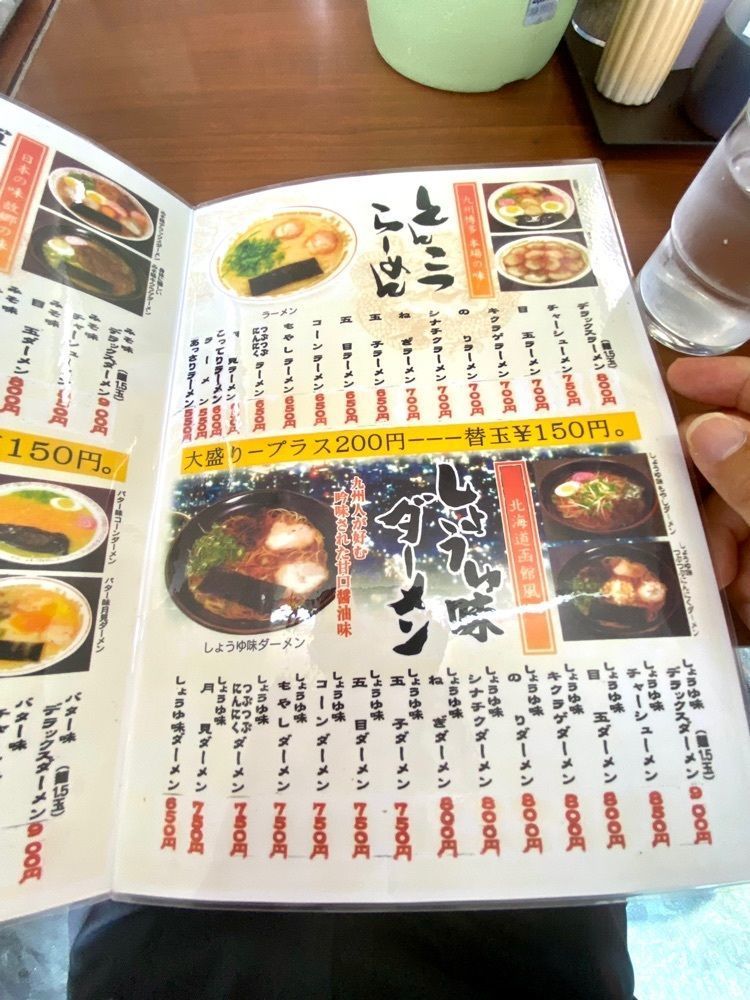 日本の味 故郷の味
みそ味
デラックスダーメン
(麺1.5玉)
900円
みそ味
チャーシューメン
850円
みそ味
目玉ダーメン
800円
¥150円。
バター味コーンダーメン
バター味月見ダーメン
バター味
デラックスダーメン
(麺1.5玉)
900円
バター味
とんこつ
らーめん
九州博多 本場の味
ラーメン
デラックスラーメン
(麺1.5玉)
800円
チャーシューメン 750円
目玉ラーメン 700円
キクラゲラーメン 700円
のりラーメン 700円
シナチクラーメン 700円
ねぎラーメン 700円
玉子ラーメン 650円
五目ラーメン 650円
コーンラーメン 650円
もやしラーメン 650円
つぶつぶにんにくラーメン 650円
月見ラーメン
こってりラーメン 600円
ラーメン 550円
あっさりラーメン 550円
大盛りープラス200円ーーー替玉¥150円。
しょうゆ味
ダーメン
北海道函館風
九州人が好む
吟味された甘口醤油味
しょうゆ味ダーメン
しょうゆ味
つぶつぶにんにくダーメン
しょうゆ味
デラックスダーメン
(麺1.5玉)
900円
しょうゆ味
チャーシューメン 850円
しょうゆ味
目玉ダーメン 800円
しょうゆ味
キクラゲダーメン 800円
しょうゆ味
のりダーメン 800円
しょうゆ味
シナチクダーメン 800円
しょうゆ味
ねぎダーメン 800円
しょうゆ味
玉子ダーメン 750円
しょうゆ味
五目ダーメン 750円
しょうゆ味
コーンダーメン 750円
しょうゆ味
もやしダーメン 750円
しょうゆ味
つぶつぶにんにくダーメン 750円
しょうゆ味
月見ダーメン 750円
しょうゆ味ダーメン 650円